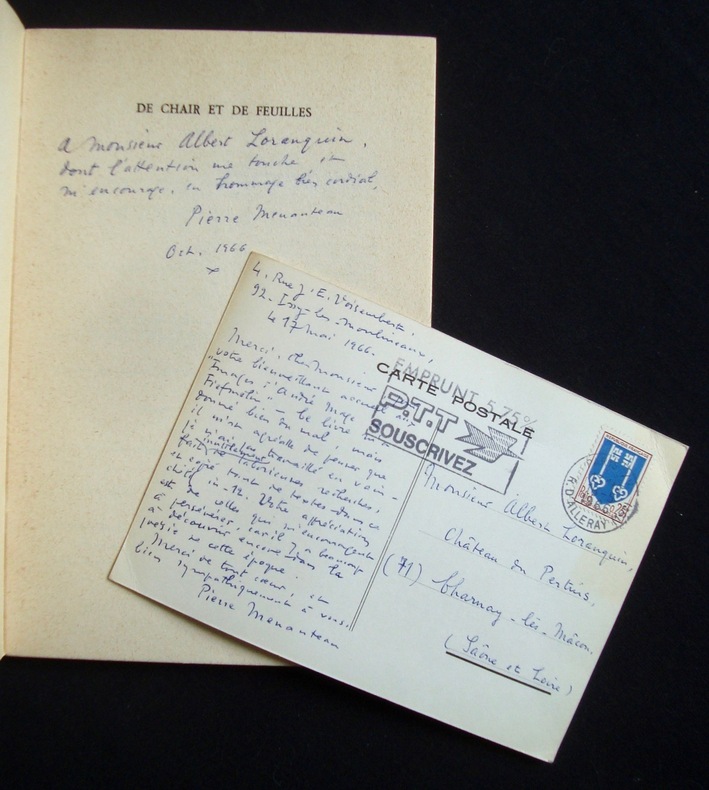 DE CHAIR ET DE FEUILLES
A Monsieur Albert Loranquin,
dont l'attention me touche et
m'encourage, en hommage très cordial,
Pierre Menanteau
Oct. 1966
4. Rue J. E. Voisembert
92. Issy-les-Moulineaux,
le 17 mai 1966.
Merci, cher Monsieur
votre bienveillant accueil aux
"Images d'André Mage de
Fiefmelin". Ce livre m'a
donné bien du mal ; mais
il m'est agréable de penser que
je n'ai pas travaillé en vain
fait de laborieuses recherches,
tant de textes dans ce
in-12. Votre appréciation
est de celles qui m'encouragent
à persévérer, car il y a beaucoup
à découvrir encore dans la
poésie de cette époque.
Merci de tout cœur, et
bien sympathiquement à vous.
Pierre Menanteau
EMPRUNT 5,75%
CARTE POSTALE
P.T.T
SOUSCRIVEZ
REPUBLIQUE FRANCAISE
R. D'ALLERAY
Monsieur Albert Loranquin,
Château du Pertuis,
(71) Charnay-lès-Mâcon.
(Saône et Loire)